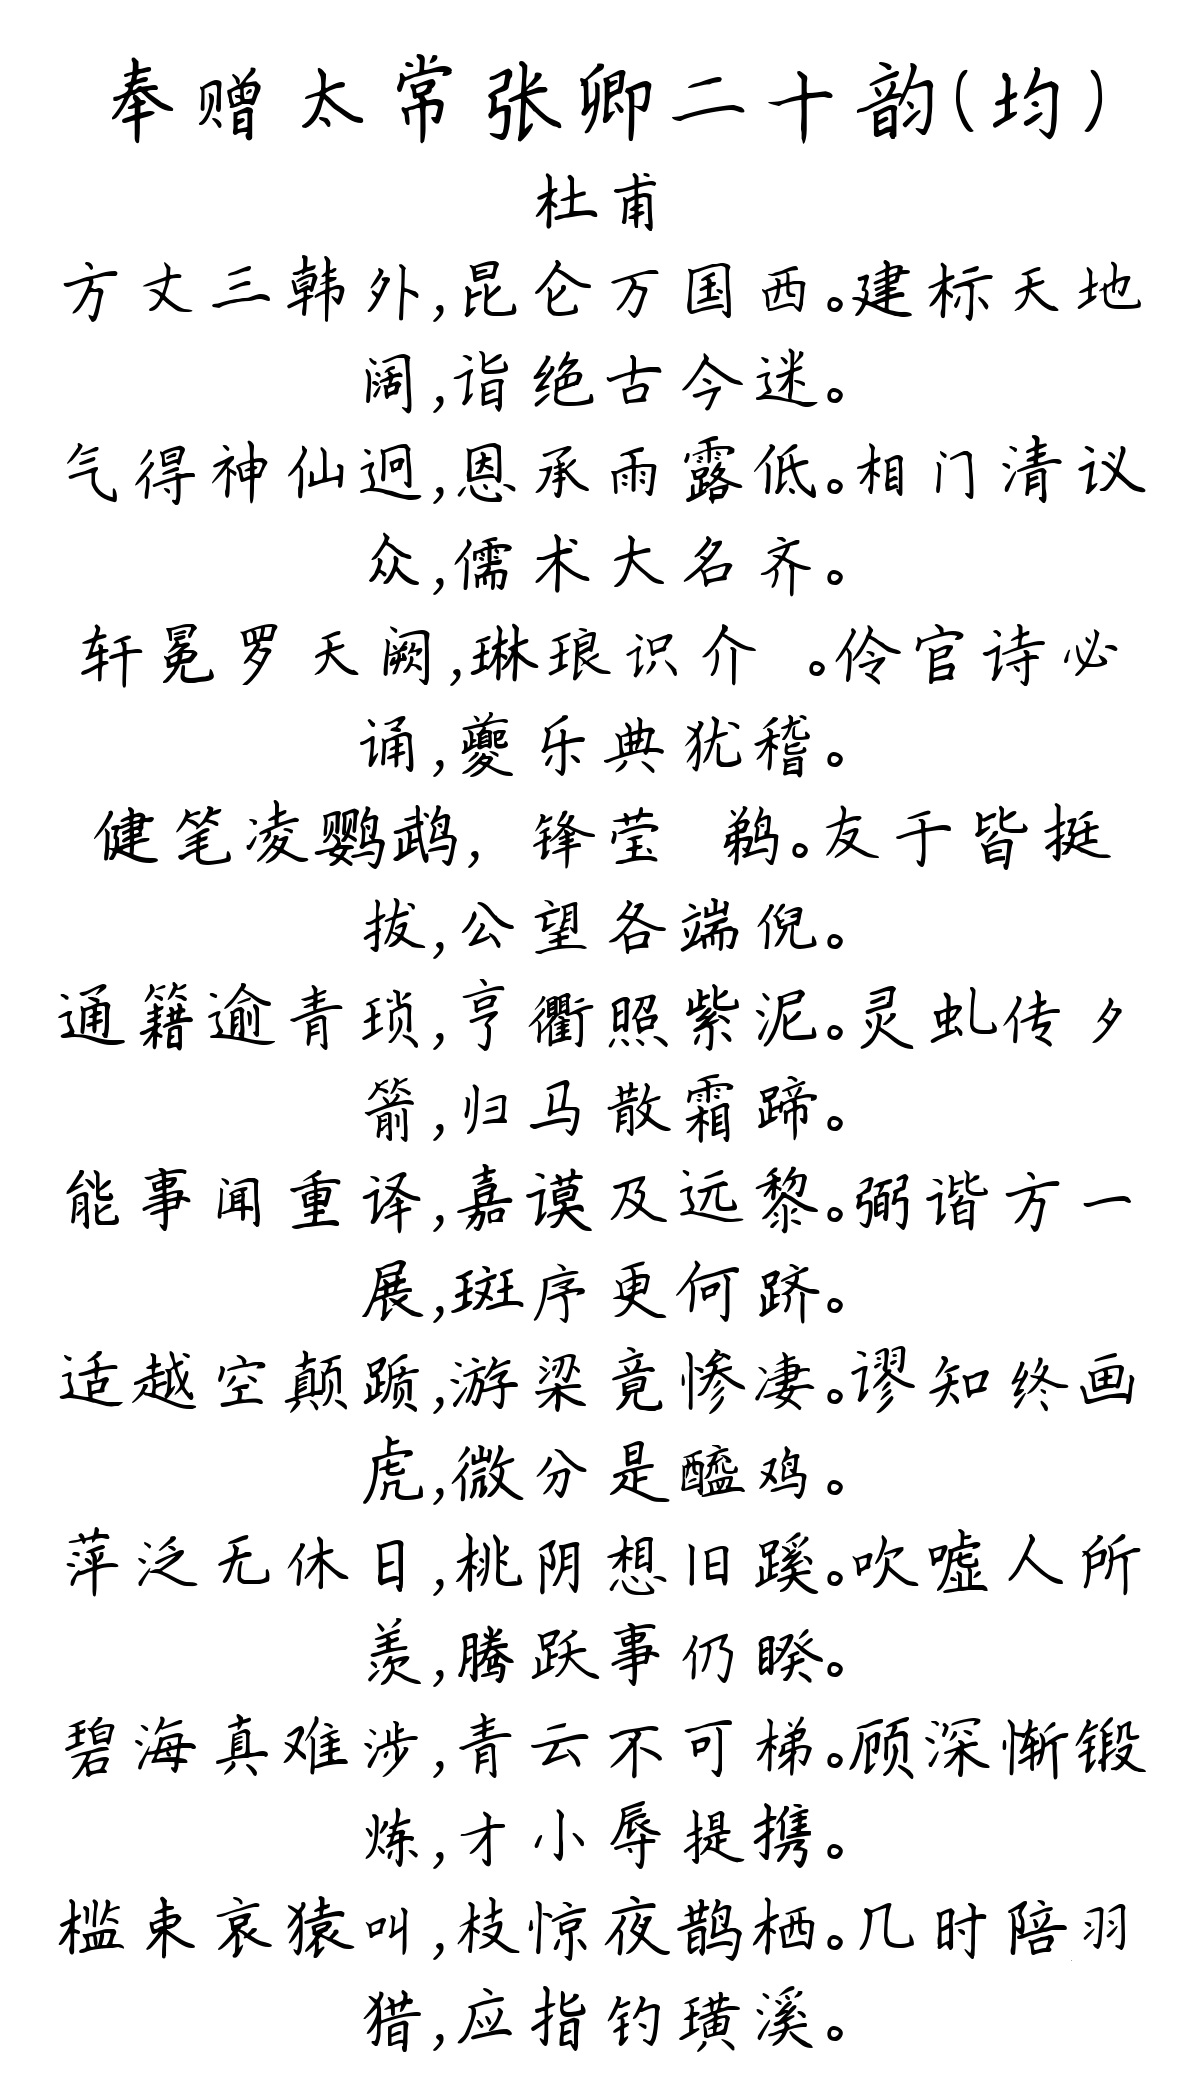 奉赠太常张卿二十韵(均)
杜甫
方丈三韩外,昆仑万国西。建标天地
阔,诣绝古今迷。
气得神仙迥,恩承雨露低。相门清议
众,儒术大名齐。
轩冕罗天阙,琳琅识介 。伶官诗必
诵,夔乐典犹稽。
健笔凌鹦鹉, 锋莹 鹈。友于皆挺
拔,公望各端倪。
通籍逾青琐,亨衢照紫泥。灵虬传夕
箭,归马散霜蹄。
能事闻重译,嘉谟及远黎。弼谐方一
展,斑序更何跻。
适越空颠踬,游梁竟惨凄。谬知终画
虎,微分是醯鸡。
萍泛无休日,桃阴想旧蹊。吹嘘人所
羡,腾跃事仍睽。
碧海真难涉,青云不可梯。顾深惭锻
炼,才小辱提携。
槛束哀猿叫,枝惊夜鹊栖。几时陪羽
猎,应指钓璜溪。